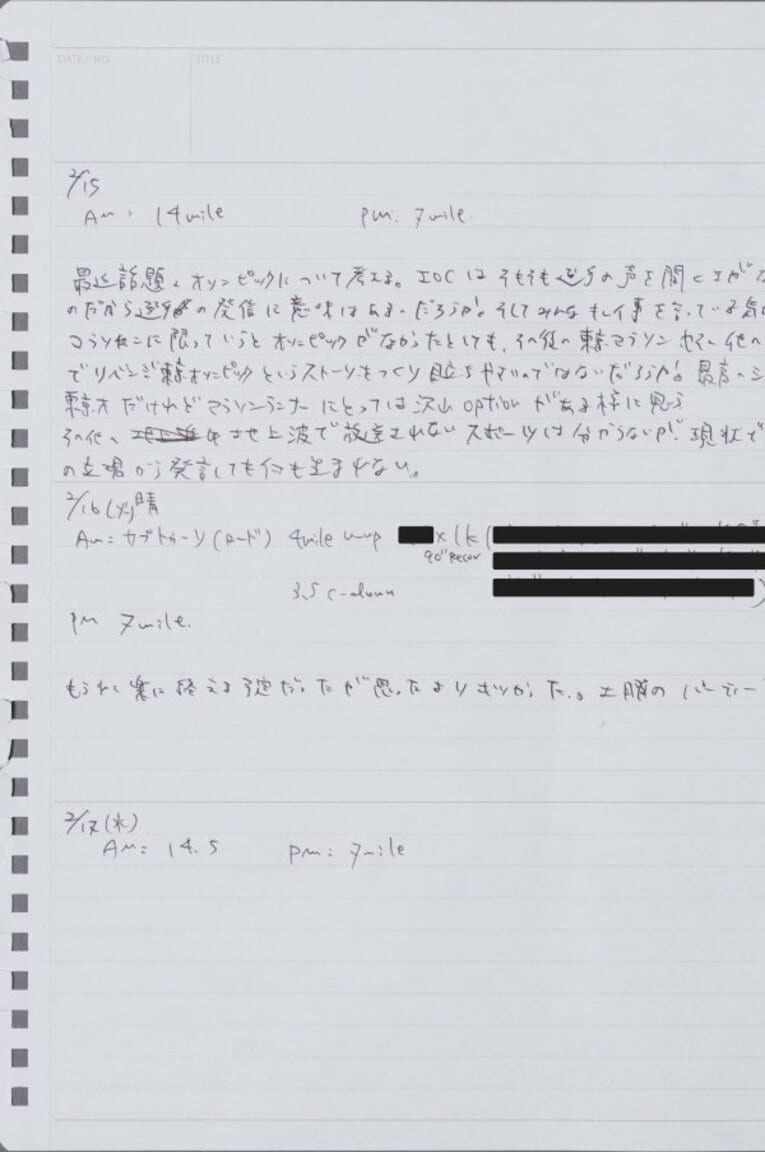 DATE/NO. TITLE
2/15
Am: 14mile pm: 7mile.
最近話題、オリンピックについて考える。IOCはそもそも選手の声を聞く
のだから選手の発信に意味はあるのだろうか。そしてみんなもし
マラソンに限っていうとオリンピックがなかったとしても、その後の東京マラソン
でリベンジ東京オリンピックというストーリーをつくり目立ちやすいのではないだろうか。最高の
東京オ だけれどマラソンランナーにとっては沢山optionがある様に思う
その他の 地上波で放送されないスポーツは分からないが、現状で
の立場から発言しても何も生まれない。
2/16(火)晴
Am: カブトゥーリ(ロード) 4mile w-up ×1k(
90"Recov
3.5 c-down
pm 7mile.
もう少し楽に終える予定だったが思ったよりキツかった。土曜のパーティー
2/17(水)
Am: 14.5 pm: 7mile